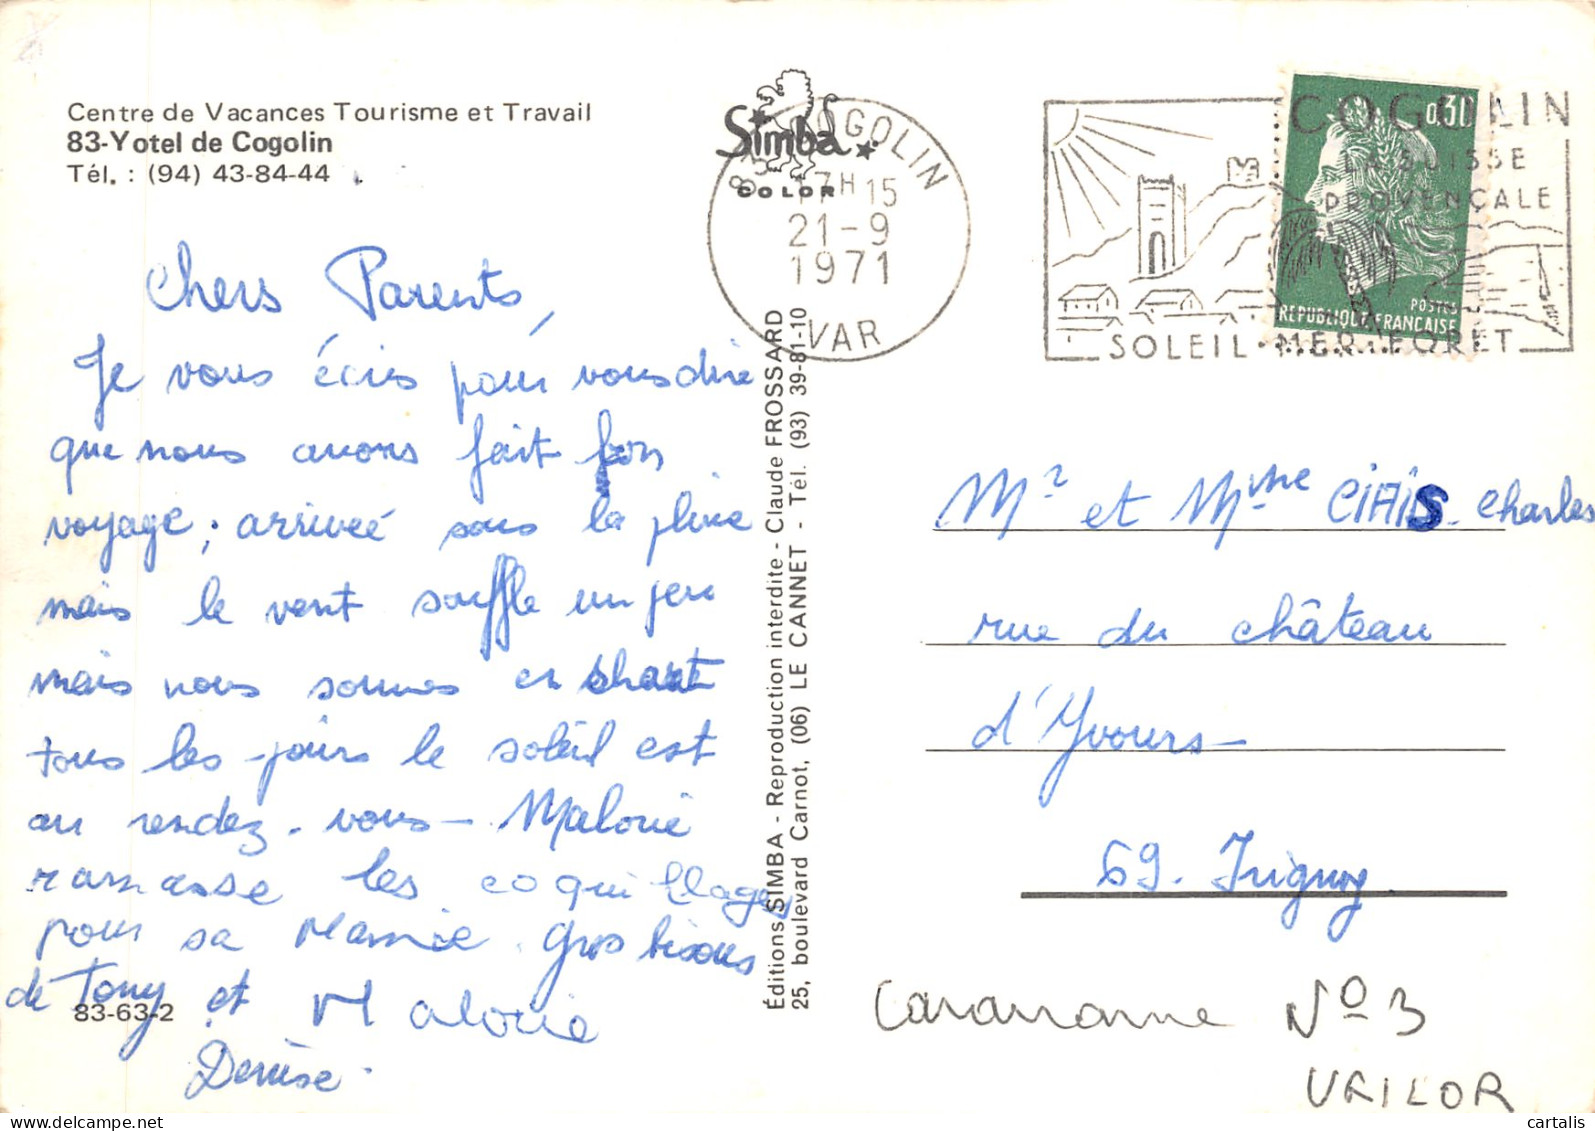 Centre de Vacances Tourisme et Travail
83-Yotel de Cogolin
Tél. : (94) 43-84-44
Simba
COLOR
COGOLIN
17H15
21-9
1971
VAR
COGOLIN
LA SUISSE
PROVENÇALE
SOLEIL · MER · FORÊT
0,30
POSTES
REPUBLIQUE FRANCAISE
Chers Parents,
Je vous écris pour vous dire
que nous avons fait bon
voyage, arriveé sous la pluie
mais le vent souffle un peu
mais nous sommes en short
tous les jours le soleil est
au rendez-vous - Malorie
ramasse les coquillages
pour sa Mamie. Gros bisous
de Tony et Malorie
Denise.
83-63-2
Éditions SIMBA - Reproduction interdite - Claude FROSSARD
25, boulevard Carnot, (06) LE CANNET - Tél. (93) 39-81-10
Mr et Mme CIAIS Charles
rue du château
d'Yvours-
69. Irigny
Caravanne No 3
VAILOR
cartalis